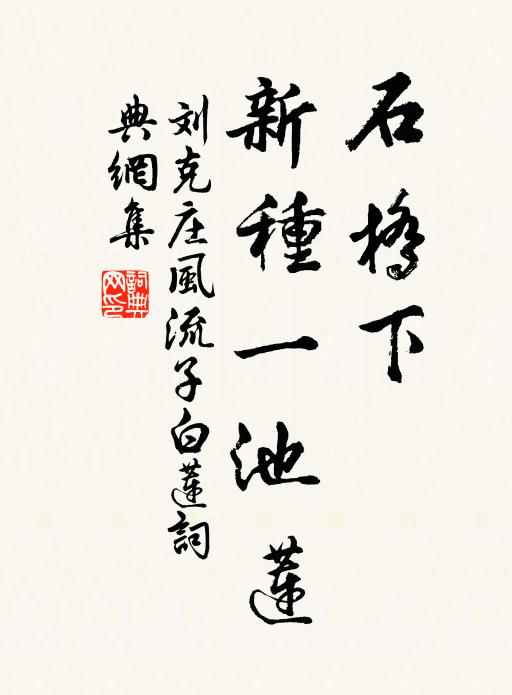 石橋下
新種一池蓮
刘克庄風流子白蓮詞
典網集
詞典网印